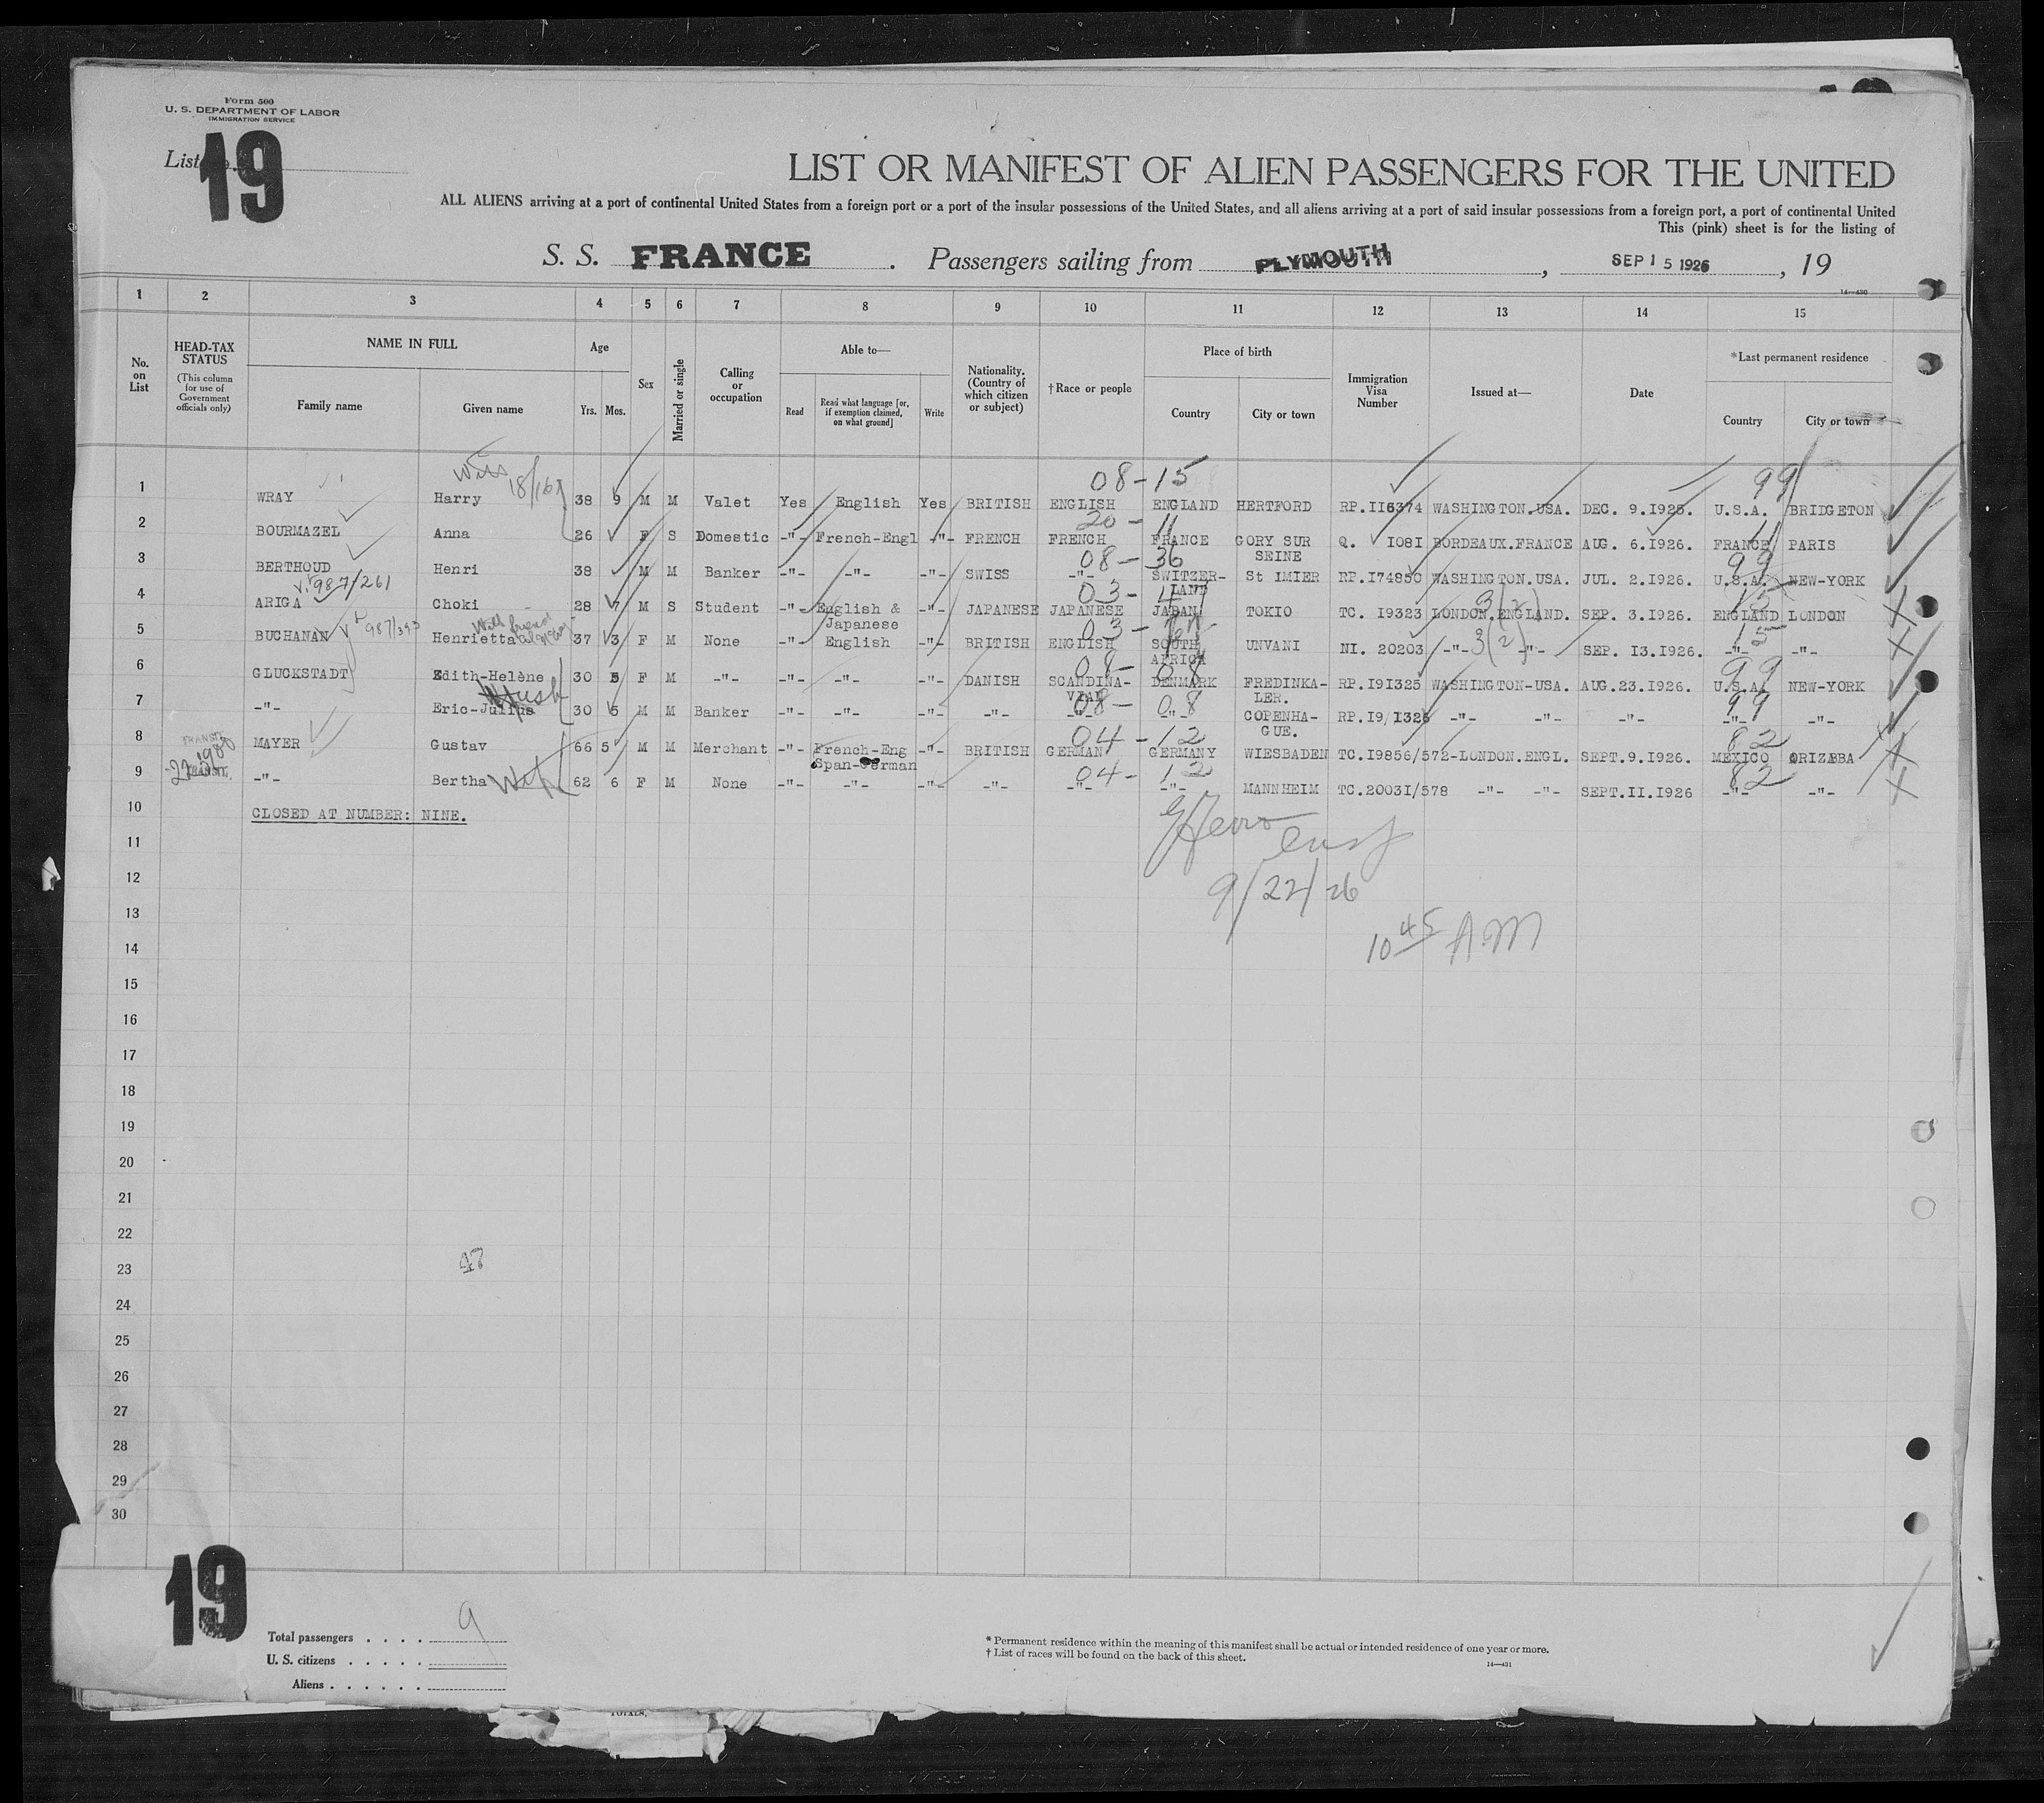 Form 500
U. S. DEPARTMENT OF LABOR
IMMIGRATION SERVICE
List No. 19
LIST OR MANIFEST OF ALIEN PASSENGERS FOR THE UNITED
ALL ALIENS arriving at a port of continental United States from a foreign port or a port of the insular possessions of the United States, and all aliens arriving at a port of said insular possessions from a foreign port, a port of continental United
This (pink) sheet is for the listing of
S. S. FRANCE . Passengers sailing from PLYMOUTH , SEP 15 1926 , 19
14—430
1 2 3 4 5 6 7 8 9 10 11 12 13 14 15
No. on List
HEAD-TAX STATUS (This column for use of Government officials only)
NAME IN FULL
Family name
Given name
Age
Yrs. Mos.
Sex
Married or single
Calling or occupation
Able to—
Read
Read what language [or, if exemption claimed, on what ground]
Write
Nationality. (Country of which citizen or subject)
†Race or people
Place of birth
Country
City or town
Immigration Visa Number
Issued at—
Date
*Last permanent residence
Country
City or town
18/16 08-15 99
1 WRAY Harry 38 9 M M Valet Yes English Yes BRITISH ENGLISH ENGLAND HERTFORD RP.II6374 WASHINGTON.USA. DEC. 9.I925. U.S.A. BRIDGETON
20-11 11
2 BOURMAZEL Anna 26 F S Domestic -"- French-Engl -"- FRENCH FRENCH FRANCE GORY SUR SEINE Q. I08I BORDEAUX.FRANCE AUG. 6.I926. FRANCE PARIS
08-36 99
3 BERTHOUD Henri 38 M M Banker -"- -"- -"- SWISS -"- SWITZER-LAND St IMIER RP.I74850 WASHINGTON.USA. JUL. 2.I926. U.S.A. NEW-YORK
987/261 03-41 3(2) 15
4 ARIGA Choki 28 7 M S Student -"- English & Japanese -"- JAPANESE JAPANESE JAPAN TOKIO TC. I9323 LONDON.ENGLAND. SEP. 3.I926. ENGLAND LONDON
987/393 With friend 03- 3(2) 15
5 BUCHANAN Henrietta 37 3 F M None -"- English -"- BRITISH ENGLISH SOUTH AFRICA UNVANI NI. 20203 -"- -"- SEP. I3.I926. -"- -"-
08-08 99
6 GLUCKSTADT Edith-Helène 30 5 F M -"- -"- -"- -"- DANISH SCANDINA-VIAN DENMARK FREDINKA-LER. RP.I9I325 WASHINGTON-USA. AUG.23.I926. U.S.A. NEW-YORK
Hush 08-08 99
7 -"- Eric-Julius 30 5 M M Banker -"- -"- -"- -"- -"- -"- COPENHA-GUE. RP.I9/I326 -"- -"- -"- -"- -"-
TRANSIT 04-12 82
8 MAYER Gustav 66 5 M M Merchant -"- French-Eng Span-German -"- BRITISH GERMAN GERMANY WIESBADEN TC.I9856/572-LONDON.ENGL. SEPT.9.I926. MEXICO ORIZABA
TRANSIT. Wife 04-12 82
9 -"- Bertha 62 6 F M None -"- -"- -"- -"- -"- -"- MANNHEIM TC.2003I/578 -"- -"- SEPT.II.I926 -"- -"-
10 CLOSED AT NUMBER: NINE.
11
12
9/22/26
13
10 45 AM
14
15
16
17
18
19
20
21
22
23
24
25
26
27
28
29
30
19
Total passengers . . . . 9
U. S. citizens . . . . .
Aliens . . . . . .
* Permanent residence within the meaning of this manifest shall be actual or intended residence of one year or more.
† List of races will be found on the back of this sheet.
14—431
TOTALS,